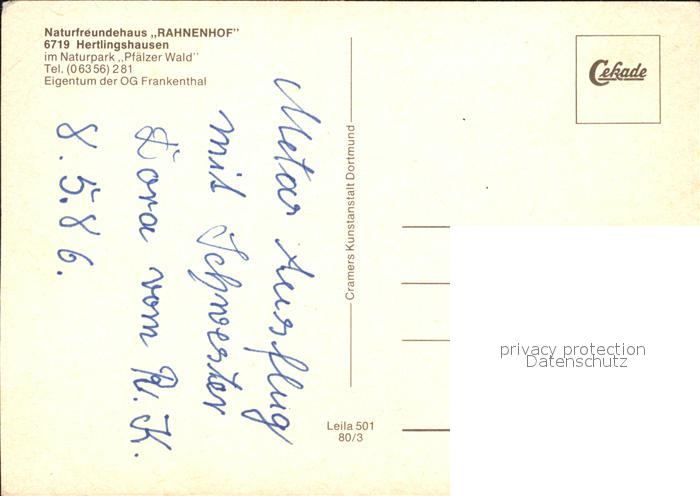 Naturfreundehaus „RAHNENHOF"
6719 Hertlingshausen
im Naturpark „Pfälzer Wald"
Tel. (06356) 281
Eigentum der OG Frankenthal
Metar Ausflug
mit Schwester
Dora vom R. K.
8. 5. 86.
Cramers Kunstanstalt Dortmund
Leila 501
80/3
Cekade
privacy protection
Datenschutz